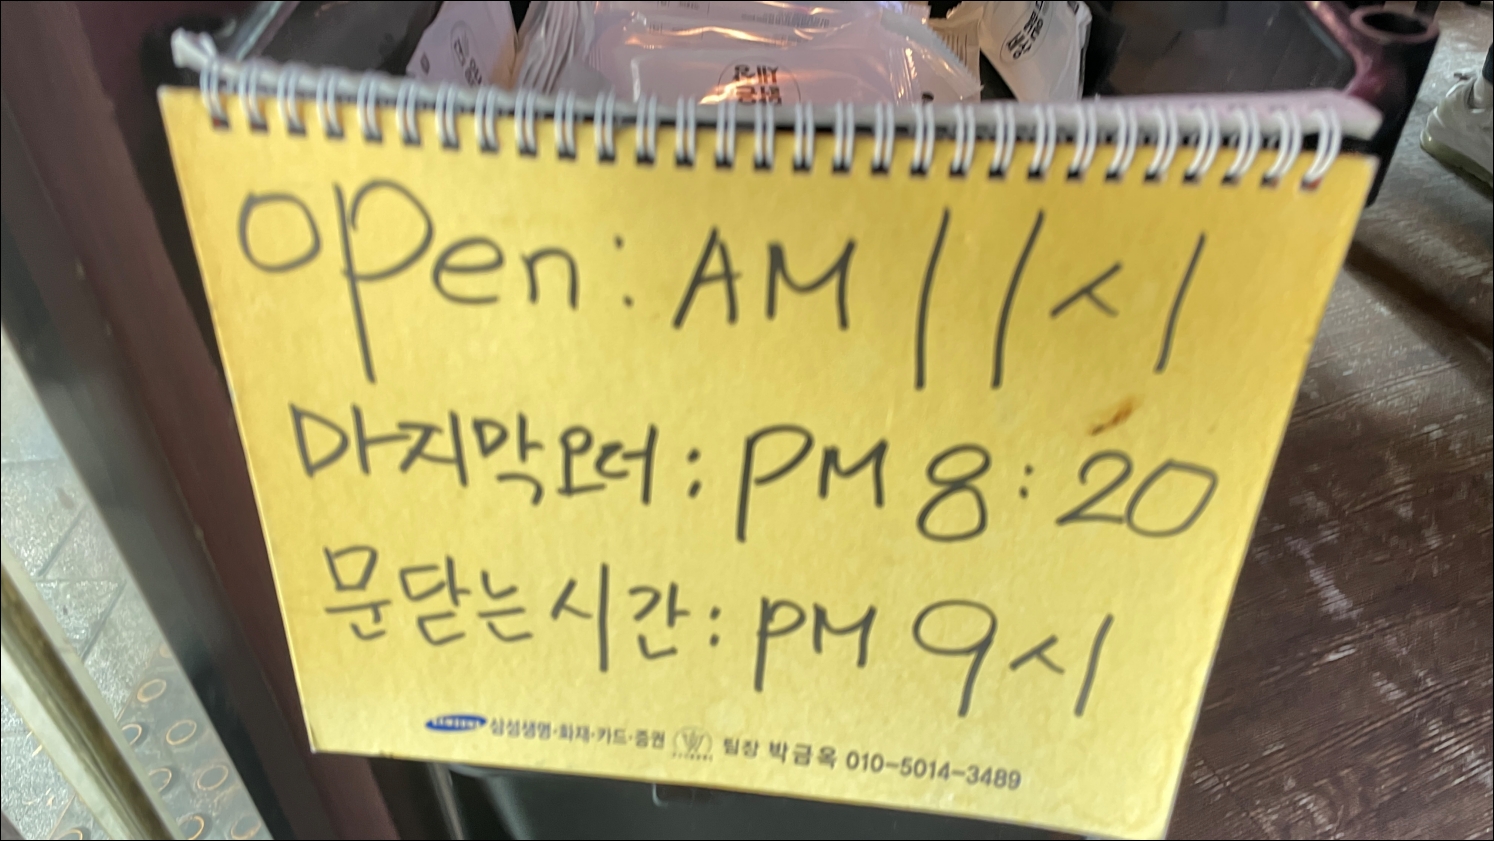 open: AM 11시
마지막오더: PM 8:20
문닫는시간: PM 9시
SAMSUNG 삼성생명·화재·카드·증권 팀장 박금옥 010-5014-3489